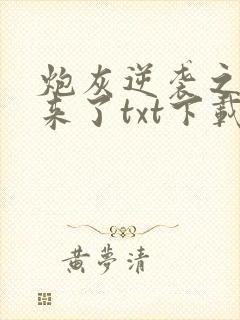 炮灰逆袭之
来了txt下載
黄夢清